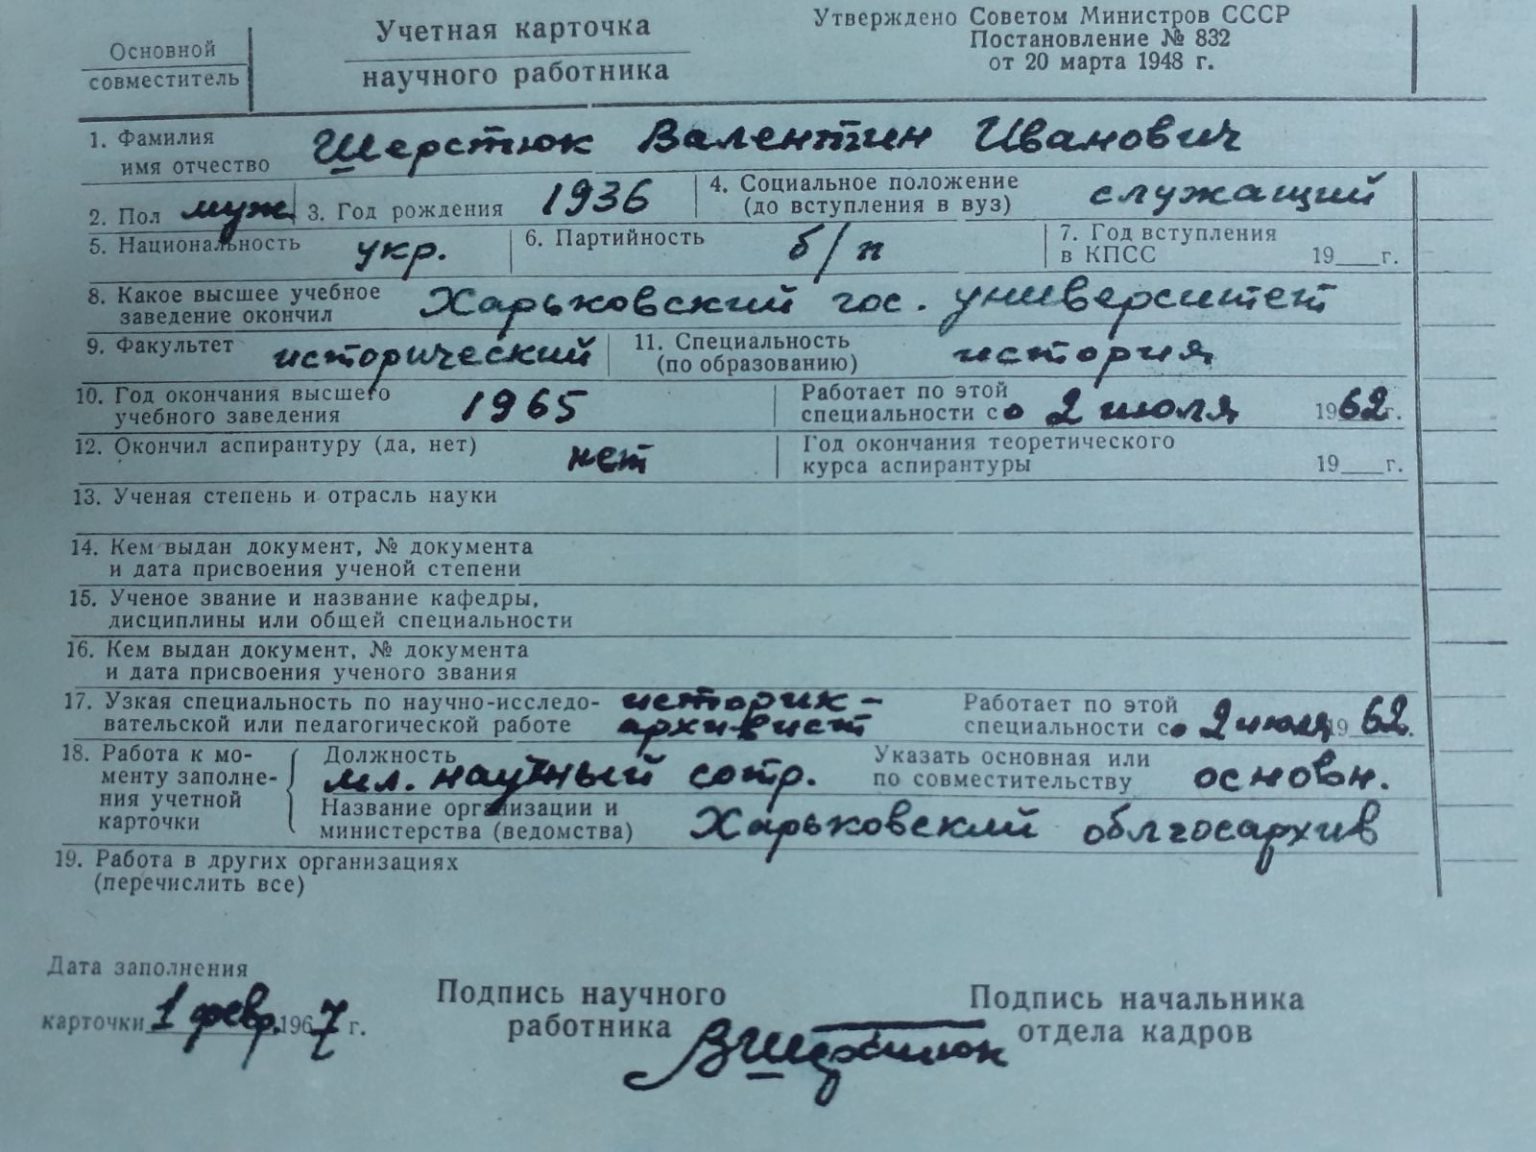 Основной
совместитель
Учетная карточка
научного работника
Утверждено Советом Министров СССР
Постановление № 832
от 20 марта 1948 г.
1. Фамилия
имя отчество Шерстюк Валентин Иванович
2. Пол муж 3. Год рождения 1936 4. Социальное положение
(до вступления в вуз) служащий
5. Национальность укр. 6. Партийность б/п 7. Год вступления
в КПСС 19___г.
8. Какое высшее учебное
заведение окончил Харьковский гос. университет
9. Факультет исторический 11. Специальность
(по образованию) история
10. Год окончания высшего
учебного заведения 1965 Работает по этой
специальности со 2 июля 1962г.
12. Окончил аспирантуру (да, нет) нет Год окончания теоретического
курса аспирантуры 19___г.
13. Ученая степень и отрасль науки
14. Кем выдан документ, № документа
и дата присвоения ученой степени
15. Ученое звание и название кафедры,
дисциплины или общей специальности
16. Кем выдан документ, № документа
и дата присвоения ученого звания
17. Узкая специальность по научно-исследо-
вательской или педагогической работе историк-
архивист Работает по этой
специальности со 2 июля 1962г.
18. Работа к мо-
менту заполне-
ния учетной
карточки
Должность
мл. научный сотр. Указать основная или
по совместительству основн.
Название организации и
министерства (ведомства) Харьковский облгосархив
19. Работа в других организациях
(перечислить все)
Дата заполнения
карточки 1 февр. 1967 г.
Подпись научного
работника ВШерстюк
Подпись начальника
отдела кадров